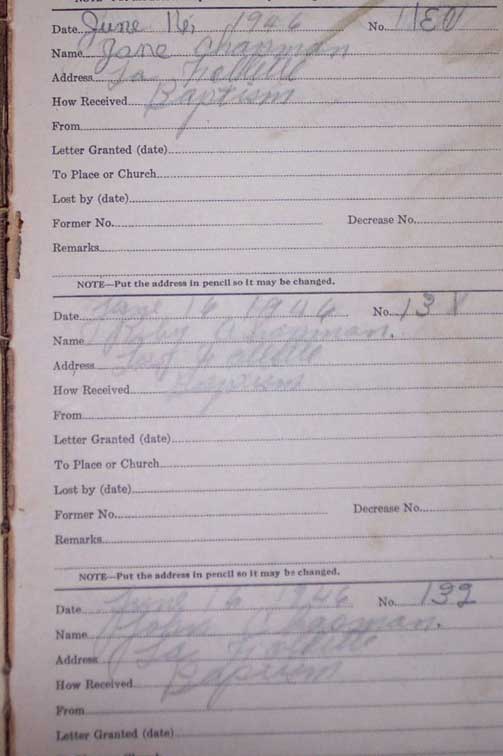 Date June 16, 1946 No.
Name Jane Chapman
Address La Follette
How Received Baptism
From
Letter Granted (date)
To Place or Church
Lost by (date)
Former No. Decrease No.
Remarks
NOTE—Put the address in pencil so it may be changed.
Date June 16 1946 No. 13
Name Ruby Chapman.
Address La Follette
How Received Baptism
From
Letter Granted (date)
To Place or Church
Lost by (date)
Former No. Decrease No.
Remarks
NOTE—Put the address in pencil so it may be changed.
Date June 16 1946 No. 132
Name John Chapman.
Address La Follette
How Received Baptism
From
Letter Granted (date)